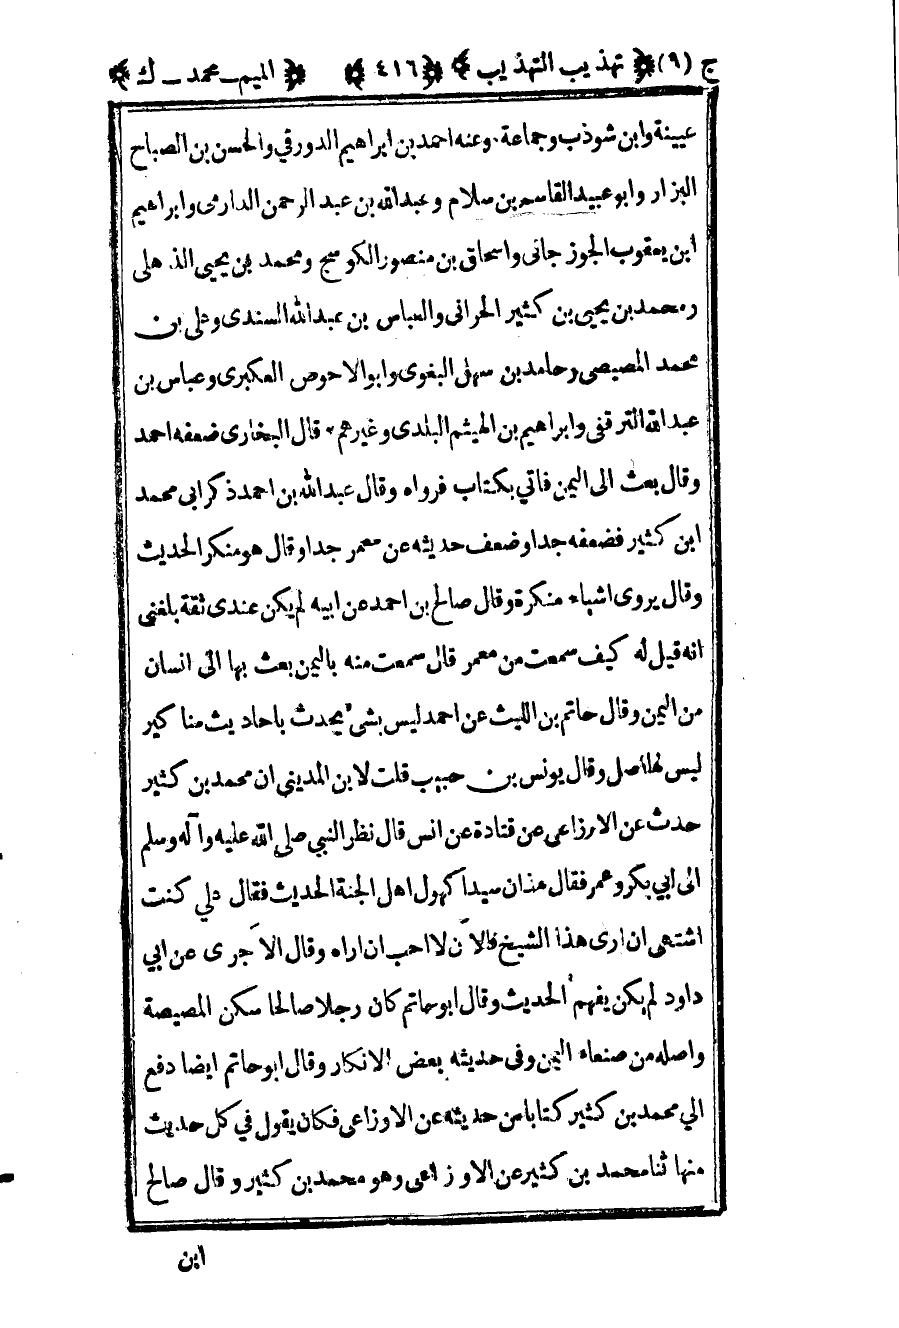 ج (٩) ﴿ تهذيب التهذيب ﴾ ﴿ ٤١٦ ﴾ ﴿ الميم ـ محمد ـ ك ﴾
عيينة وابن شوذب وجماعة . وعنه احمد بن ابراهيم الدورقي والحسن بن الصباح
البزار وابو عبيد القاسم بن سلام وعبد الله بن عبد الرحمن الدارمى وابراهيم
ابن يعقوب الجوزجانى واسحاق بن منصور الكوسج ومحمد بن يحيى الذهلى
ومحمد بن يحيى بن كثير الحرانى والعباس بن عبد الله السندى وعلى بن
محمد المصيصى وحامد بن سهل البغوى وابو الاحوص العكبرى وعباس بن
عبد الله الترقفى وابراهيم بن الهيثم البلدى وغيرهم . قال البخارى ضعفه احمد
وقال بعث الى اليمن فاتي بكتاب فرواه وقال عبد الله بن احمد ذكر ابى محمد
ابن كثير فضعفه جدا وضعف حديثه عن معمر جدا وقال هو منكر الحديث
وقال يروى اشياء منكرة وقال صالح بن احمد عن ابيه لم يكن عندى ثقة بلغنى
انه قيل له كيف سمعت من معمر قال سمعت منه باليمن بعث بها الى انسان
من اليمن وقال حاتم بن الليث عن احمد ليس بشئ يحدث باحاديث مناكير
ليس لها اصل وقال يونس بن حبيب قلت لابن المديني ان محمد بن كثير
حدث عن الاوزاعى عن قتادة عن انس قال نظر النبي صلى الله عليه وآله وسلم
الى ابي بكر وعمر فقال هذان سيدا كهول اهل الجنة الحديث فقال علي كنت
اشتهى ان ارى هذا الشيخ فالآن لا احب ان اراه وقال الآجرى عن ابي
داود لم يكن يفهم الحديث وقال ابو حاتم كان رجلا صالحا سكن المصيصة
واصله من صنعاء اليمن وفى حديثه بعض الانكار وقال ابو حاتم ايضا دفع
الي محمد بن كثير كتابا من حديثه عن الاوزاعى فكان يقول في كل حديث
منها ثنا محمد بن كثير عن الاوزاعى وهو محمد بن كثير وقال صالح
ابن